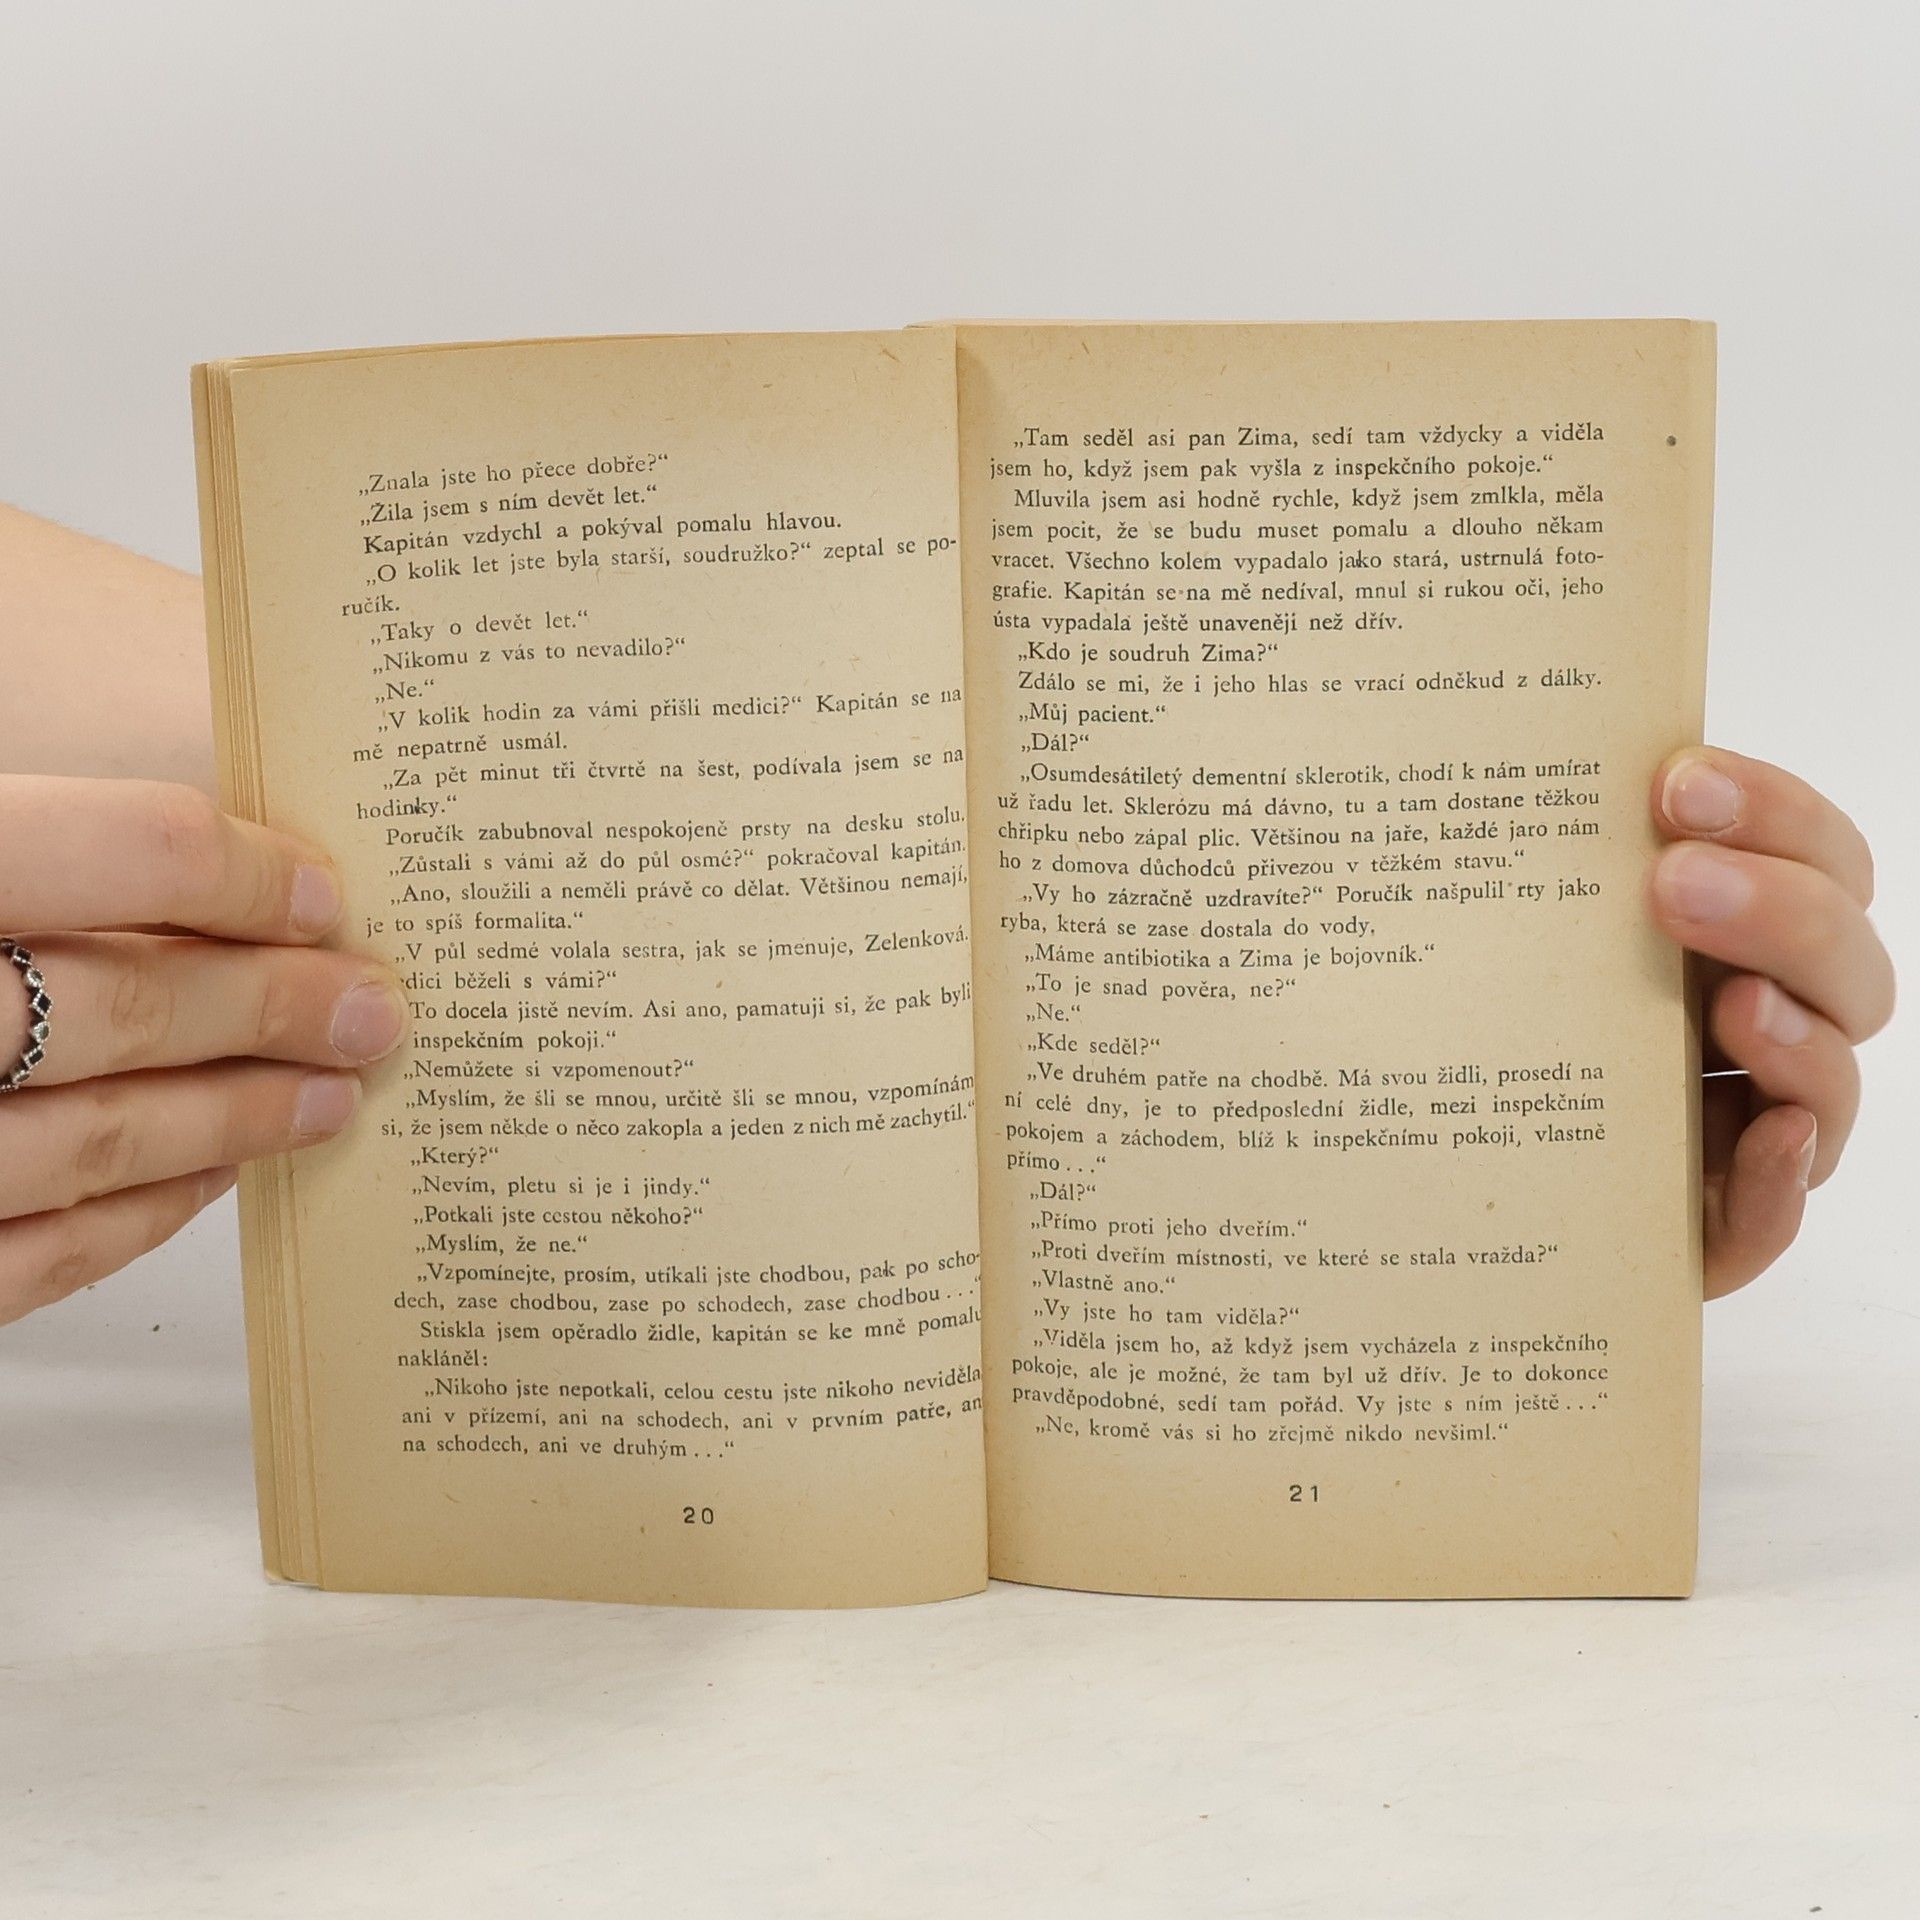 „Znala jste ho přece dobře?“
„Žila jsem s ním devět let.“
Kapitán vzdychl a pokýval pomalu hlavou.
„O kolik let jste byla starší, soudružko?“ zeptal se po-
ručík.
„Taky o devět let.“
„Nikomu z vás to nevadilo?“
„Ne.“
„V kolik hodin za vámi přišli medici?“ Kapitán se na
mě nepatrně usmál.
„Za pět minut tři čtvrtě na šest, podívala jsem se na
hodinky.“
Poručík zabubnoval nespokojeně prsty na desku stolu.
„Zůstali s vámi až do půl osmé?“ pokračoval kapitán.
„Ano, sloužili a neměli právě co dělat. Většinou nemají,
je to spíš formalita.“
„V půl sedmé volala sestra, jak se jmenuje, Zelenková.
dici běželi s vámi?“
To docela jistě nevím. Asi ano, pamatuji si, že pak byli
inspekčním pokoji.“
„Nemůžete si vzpomenout?“
„Myslím, že šli se mnou, určitě šli se mnou, vzpomínám
si, že jsem někde o něco zakopla a jeden z nich mě zachytil.“
„Který?“
„Nevím, pletu si je i jindy.“
„Potkali jste cestou někoho?“
„Myslím, že ne.“
„Vzpomínejte, prosím, utíkali jste chodbou, pak po scho-
dech, zase chodbou, zase po schodech, zase chodbou . . .“
Stiskla jsem opěradlo židle, kapitán se ke mně pomalu
nakláněl:
„Nikoho jste nepotkali, celou cestu jste nikoho neviděla
ani v přízemí, ani na schodech, ani v prvním patře, an
na schodech, ani ve druhým . . .“
20
„Tam seděl asi pan Zima, sedí tam vždycky a viděla
jsem ho, když jsem pak vyšla z inspekčního pokoje.“
Mluvila jsem asi hodně rychle, když jsem zmlkla, měla
jsem pocit, že se budu muset pomalu a dlouho někam
vracet. Všechno kolem vypadalo jako stará, ustrnulá foto-
grafie. Kapitán se na mě nedíval, mnul si rukou oči, jeho
ústa vypadala ještě unaveněji než dřív.
„Kdo je soudruh Zima?“
Zdálo se mi, že i jeho hlas se vrací odněkud z dálky.
„Můj pacient.“
„Dál?“
„Osumdesátiletý dementní sklerotik, chodí k nám umírat
už řadu let. Sklerózu má dávno, tu a tam dostane těžkou
chřipku nebo zápal plic. Většinou na jaře, každé jaro nám
ho z domova důchodců přivezou v těžkém stavu.“
„Vy ho zázračně uzdravíte?“ Poručík našpulil rty jako
ryba, která se zase dostala do vody.
„Máme antibiotika a Zima je bojovník.“
„To je snad pověra, ne?“
„Ne.“
„Kde seděl?“
„Ve druhém patře na chodbě. Má svou židli, prosedí na
ní celé dny, je to předposlední židle, mezi inspekčním
pokojem a záchodem, blíž k inspekčnímu pokoji, vlastně
přímo . . .“
„Dál?“
„Přímo proti jeho dveřím.“
„Proti dveřím místnosti, ve které se stala vražda?“
„Vlastně ano.“
„Vy jste ho tam viděla?“
„Viděla jsem ho, až když jsem vycházela z inspekčního
pokoje, ale je možné, že tam byl už dřív. Je to dokonce
pravděpodobné, sedí tam pořád. Vy jste s ním ještě . . .“
„Ne, kromě vás si ho zřejmě nikdo nevšiml.“
21